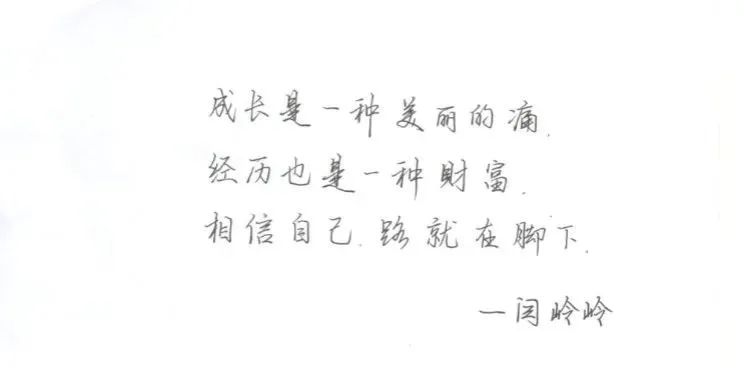 成长是一种美丽的痛.
经历也是一种财富.
相信自己.路就在脚下.
一闫岭岭